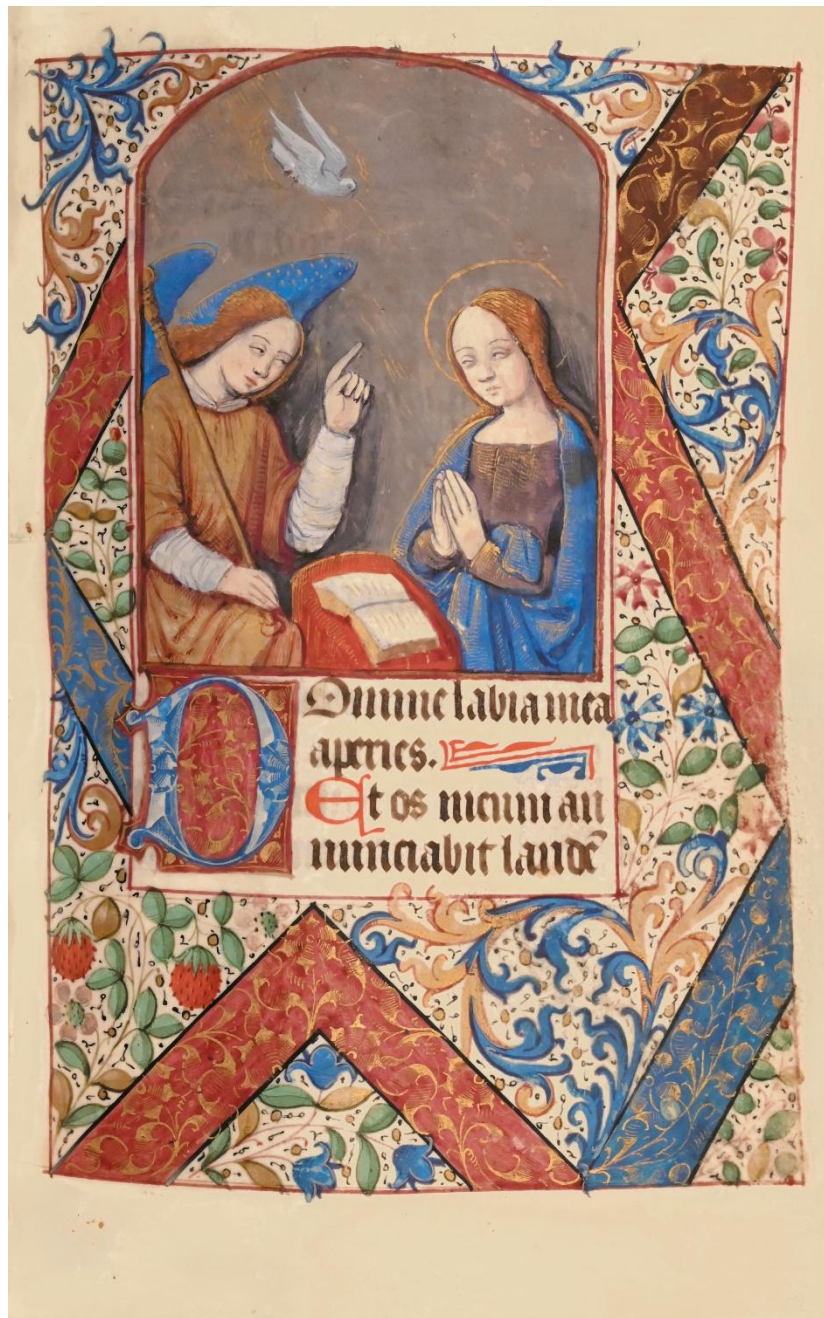 Domine labia mea
aperies.
Et os meum an
nunciabit laudē